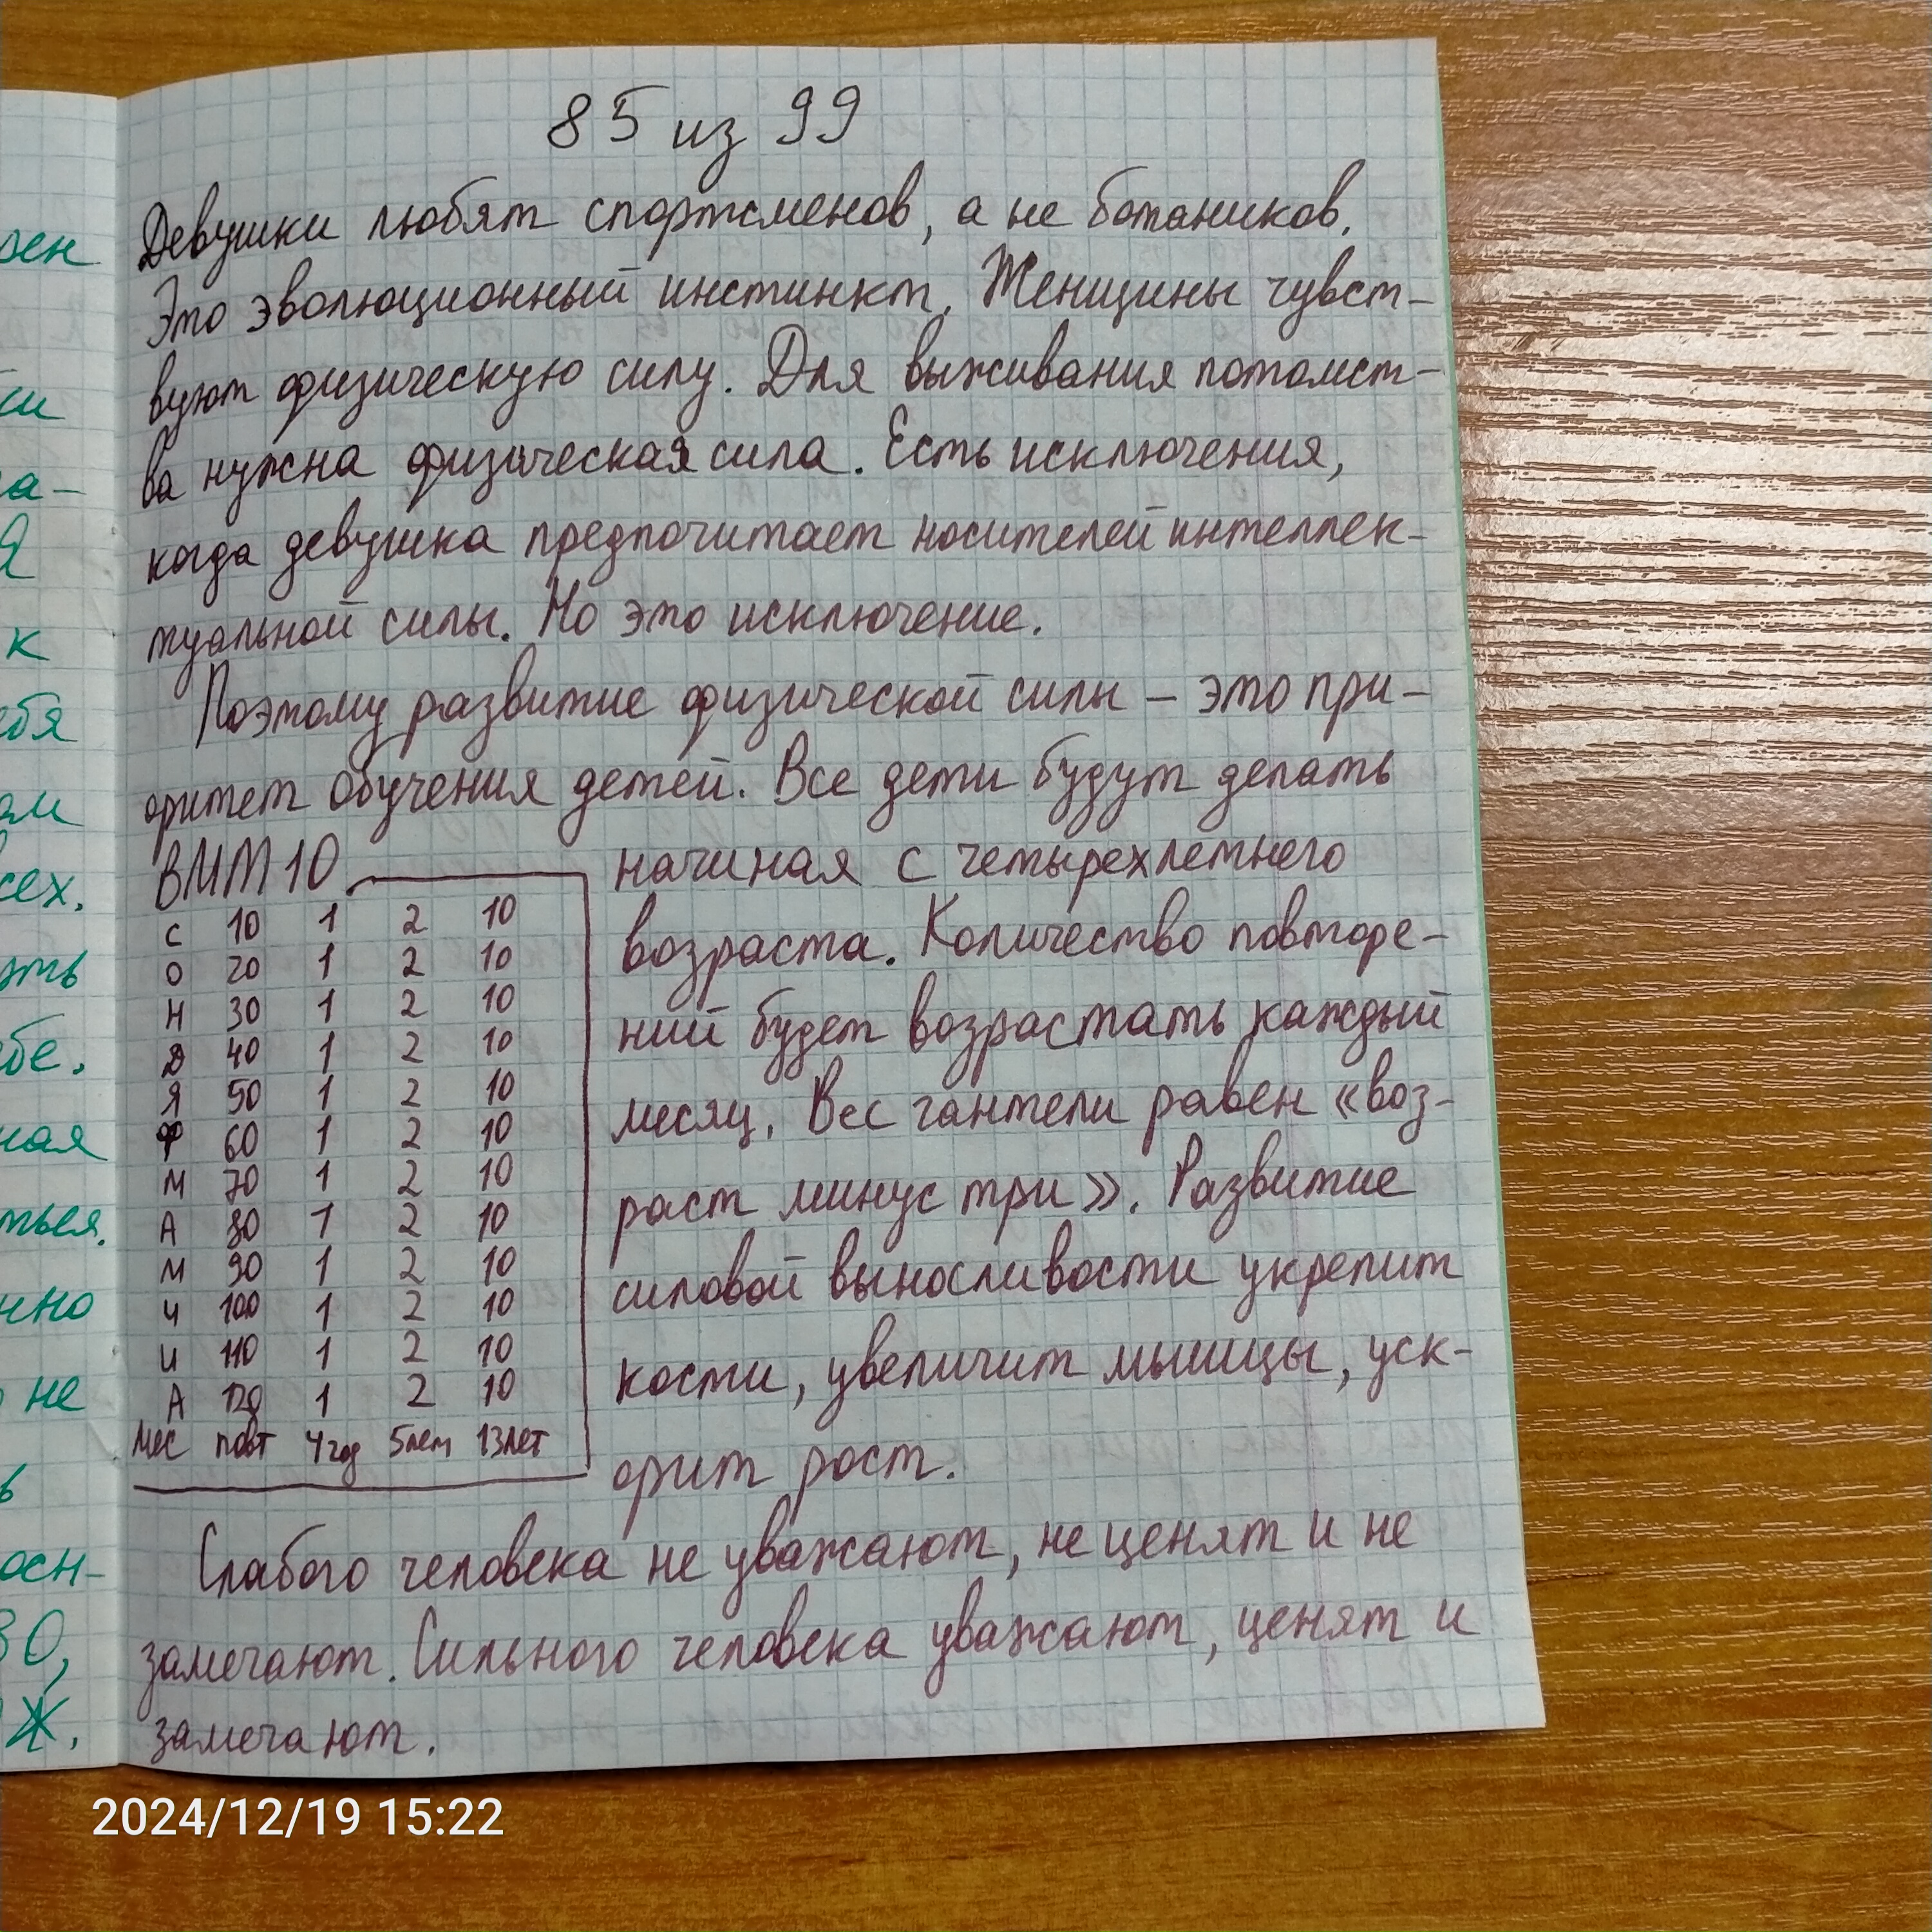 85 из 99
Девушки любят спортсменов, а не ботаников.
Это эволюционный инстинкт. Женщины чувст-
вуют физическую силу. Для выживания потомст-
ва нужна физическая сила. Есть исключения,
когда девушка предпочитает носителей интеллек-
туальной силы. Но это исключение.
Поэтому развитие физической силы – это при-
оритет обучения детей. Все дети будут делать
ВММ10
С 10 1 2 10
О 20 1 2 10
Н 30 1 2 10
Д 40 1 2 10
Я 50 1 2 10
Ф 60 1 2 10
М 70 1 2 10
А 80 1 2 10
М 90 1 2 10
И 100 1 2 10
И 110 1 2 10
А 120 1 2 10
мес повт 4 год 5 лет 13 лет
начиная с четырехлетнего
возраста. Количество повторе-
ний будет возрастать каждый
месяц. Вес гантели равен «воз-
раст минус три». Развитие
силовой выносливости укрепит
кости, увеличит мышцы, уск-
орит рост.
Слабого человека не уважают, не ценят и не
замечают. Сильного человека уважают, ценят и
замечают.
2024/12/19 15:22